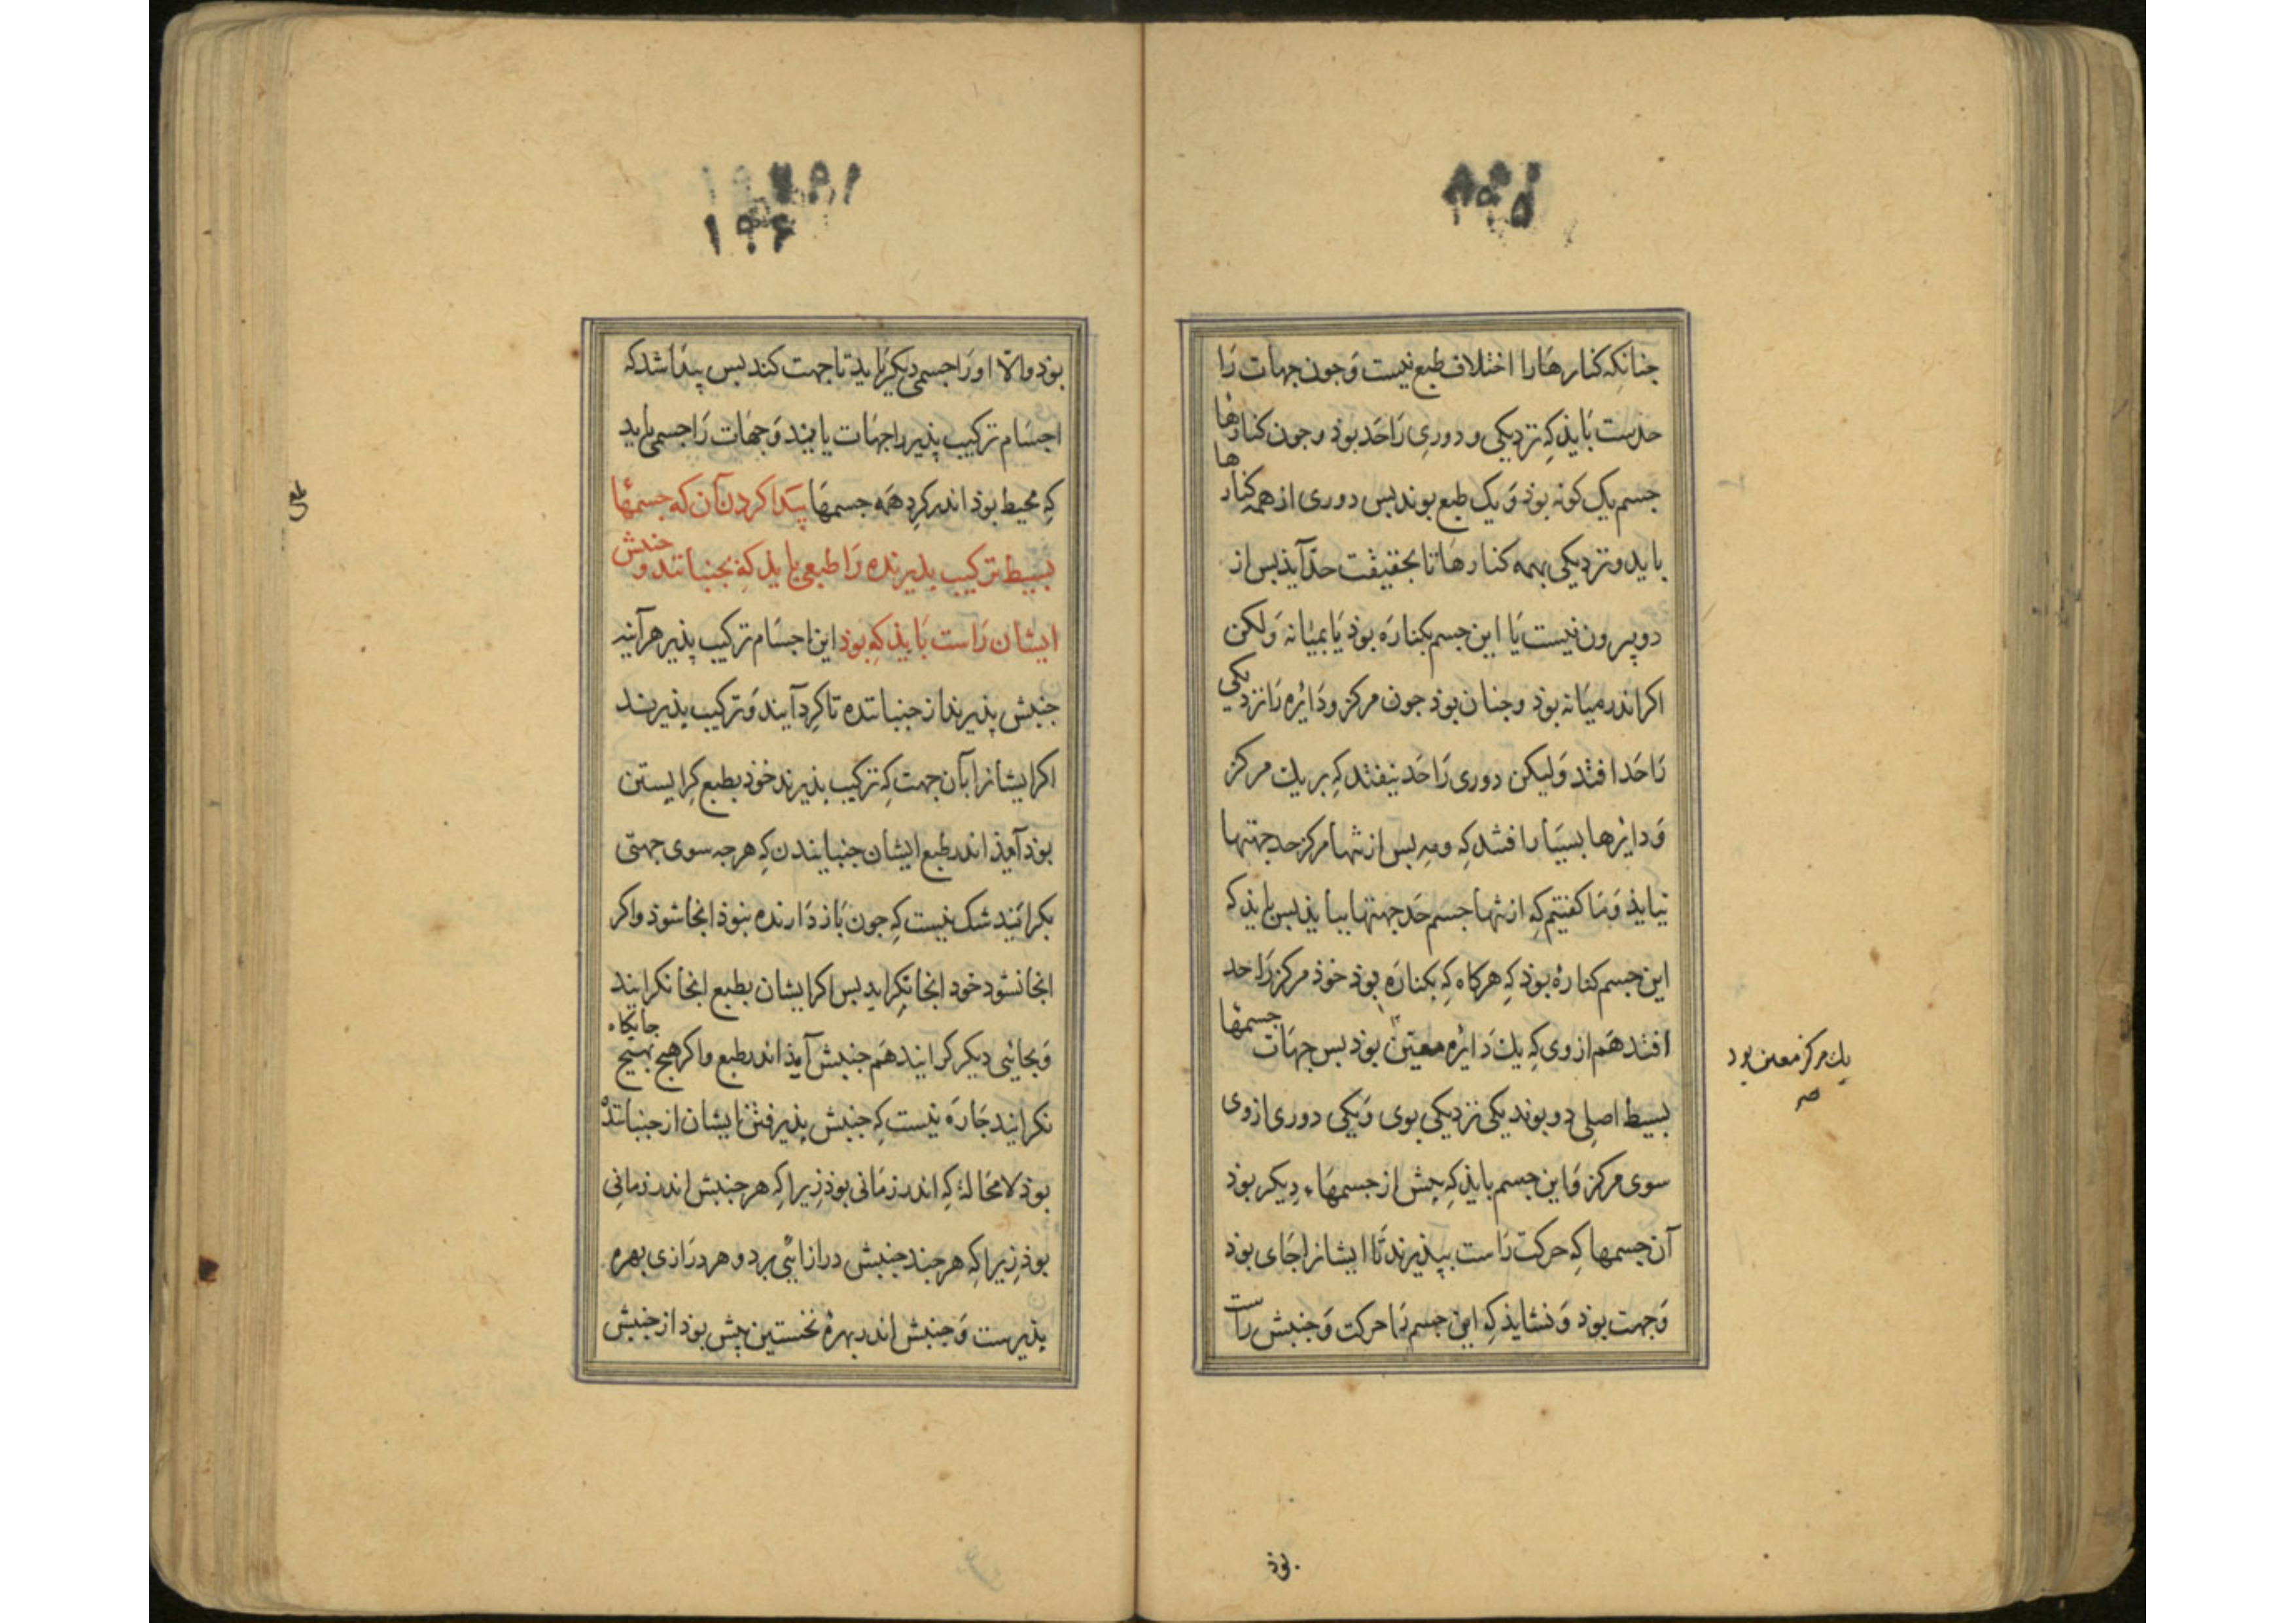 جنانکه کنارهَا را اختلاف طبع نیست وَجون جهات رَا
حذست بَایذ کِه نزدیکی و دورِی رَا حَد بوذ وجون کنارهٔا
جسم یک کونه بوذ وَیک طبع بوند بس دوری از همه کنارها
باید ونزدیکی بهمه کنارهَا تا بحقیقت حدّ آیذ بس از
دو بیرون نیست یَا این جسم بکنارَه بوذ یَا بمیٰانه وَلکن
اکر اندر میَانه بوذ وجنان بوذ جون مرکز ودَائره تا نزدیکی
رَا حَد افتد وَلیکن دوری رَا حَد نیفتد کِه بر یك مرکز
وَدایرها بسیَار افتد کِه ومِه بس از تنها مرکز حد جهتها
نیایذ وَمَا کفتیم کِه از تنها جسم حَد جهتها بیایذ بس بایذ کِه
این جسم کنارهٔ بوذ کِه هرکاه کِه بکنارَه بوذ خوذ مرکز رَا حد
افتد هَم از وی کِه یك دَائره معیّن بوذ بس جهَات جسمهٔا
یك مرکز معین بود
صح
بسیط اصلِی دو بوند یکی نزدیکی بوی وَیکی دوری از وی
سوی مرکز وَاین جسم بایذ کِه بیش از جسمهَاء دِیکر بوذ
آن جسمها کِه حرکت رَاست ببذیرند تَا ایشانرا جَای بوذ
وَجهت بوذ وَنشایذ کِه این جسم رَا حرکت وَجنبش راست
بوذ
۱۰۶
بوذ والّا او رَا جسمی دیکر بَاید تا جهت کند بس بیذا شد که
اجسَام ترکیب پذیر را جهَات یابمند وَجهَات رَا جسمی باید
کِه محیط بوذ اندر کِردِ همَه جسمهَا پیَدا کردن آن که جسمهٔا
بسیط ترکیب بذیرنده رَا طبعی بایذ کِه بجنبانند وجنبش
ایشان رَاست بَایذ کِه بوذ این اجسَام ترکیب پذیر هرآینه
جنبش پذیرند از جنبانتده تا کِرد آیند وَترکیب پذیرند
اکر ایشانرا بآن جهت کِه ترکیب بذیرند خوذ بطبع کِرایستن
بوذ آیذ اندر طبع ایشان جنبانیدن کِه هرجه سوی جهتی
بکرایَند شک نیست کِه جون بَاز دَارنده نبوذ انجا شوذ واکر
انجا نشود خود انجا نکِراید بس اکر ایشان بطبع انجا نکرایند
وَبجائی دیکر کرایند هَم جنبش آیذ اندر طبع واکر هیج بهیج جایکاه
نکرایند جَارَه نیست کِه جنبش پذیرفتن ایشان از جنبانندهٔ
بوذ لا محَاله کِه اندر زمَانی بوذ زیراکِه هر جنبش اندر زمانِی
بوذ زیراکِه هر جند جنبش درازائی برد وهر درَازی بهره
پذیرست وَجنبش اندر بهرهٔ نخستین پیش بوذ از جنبش